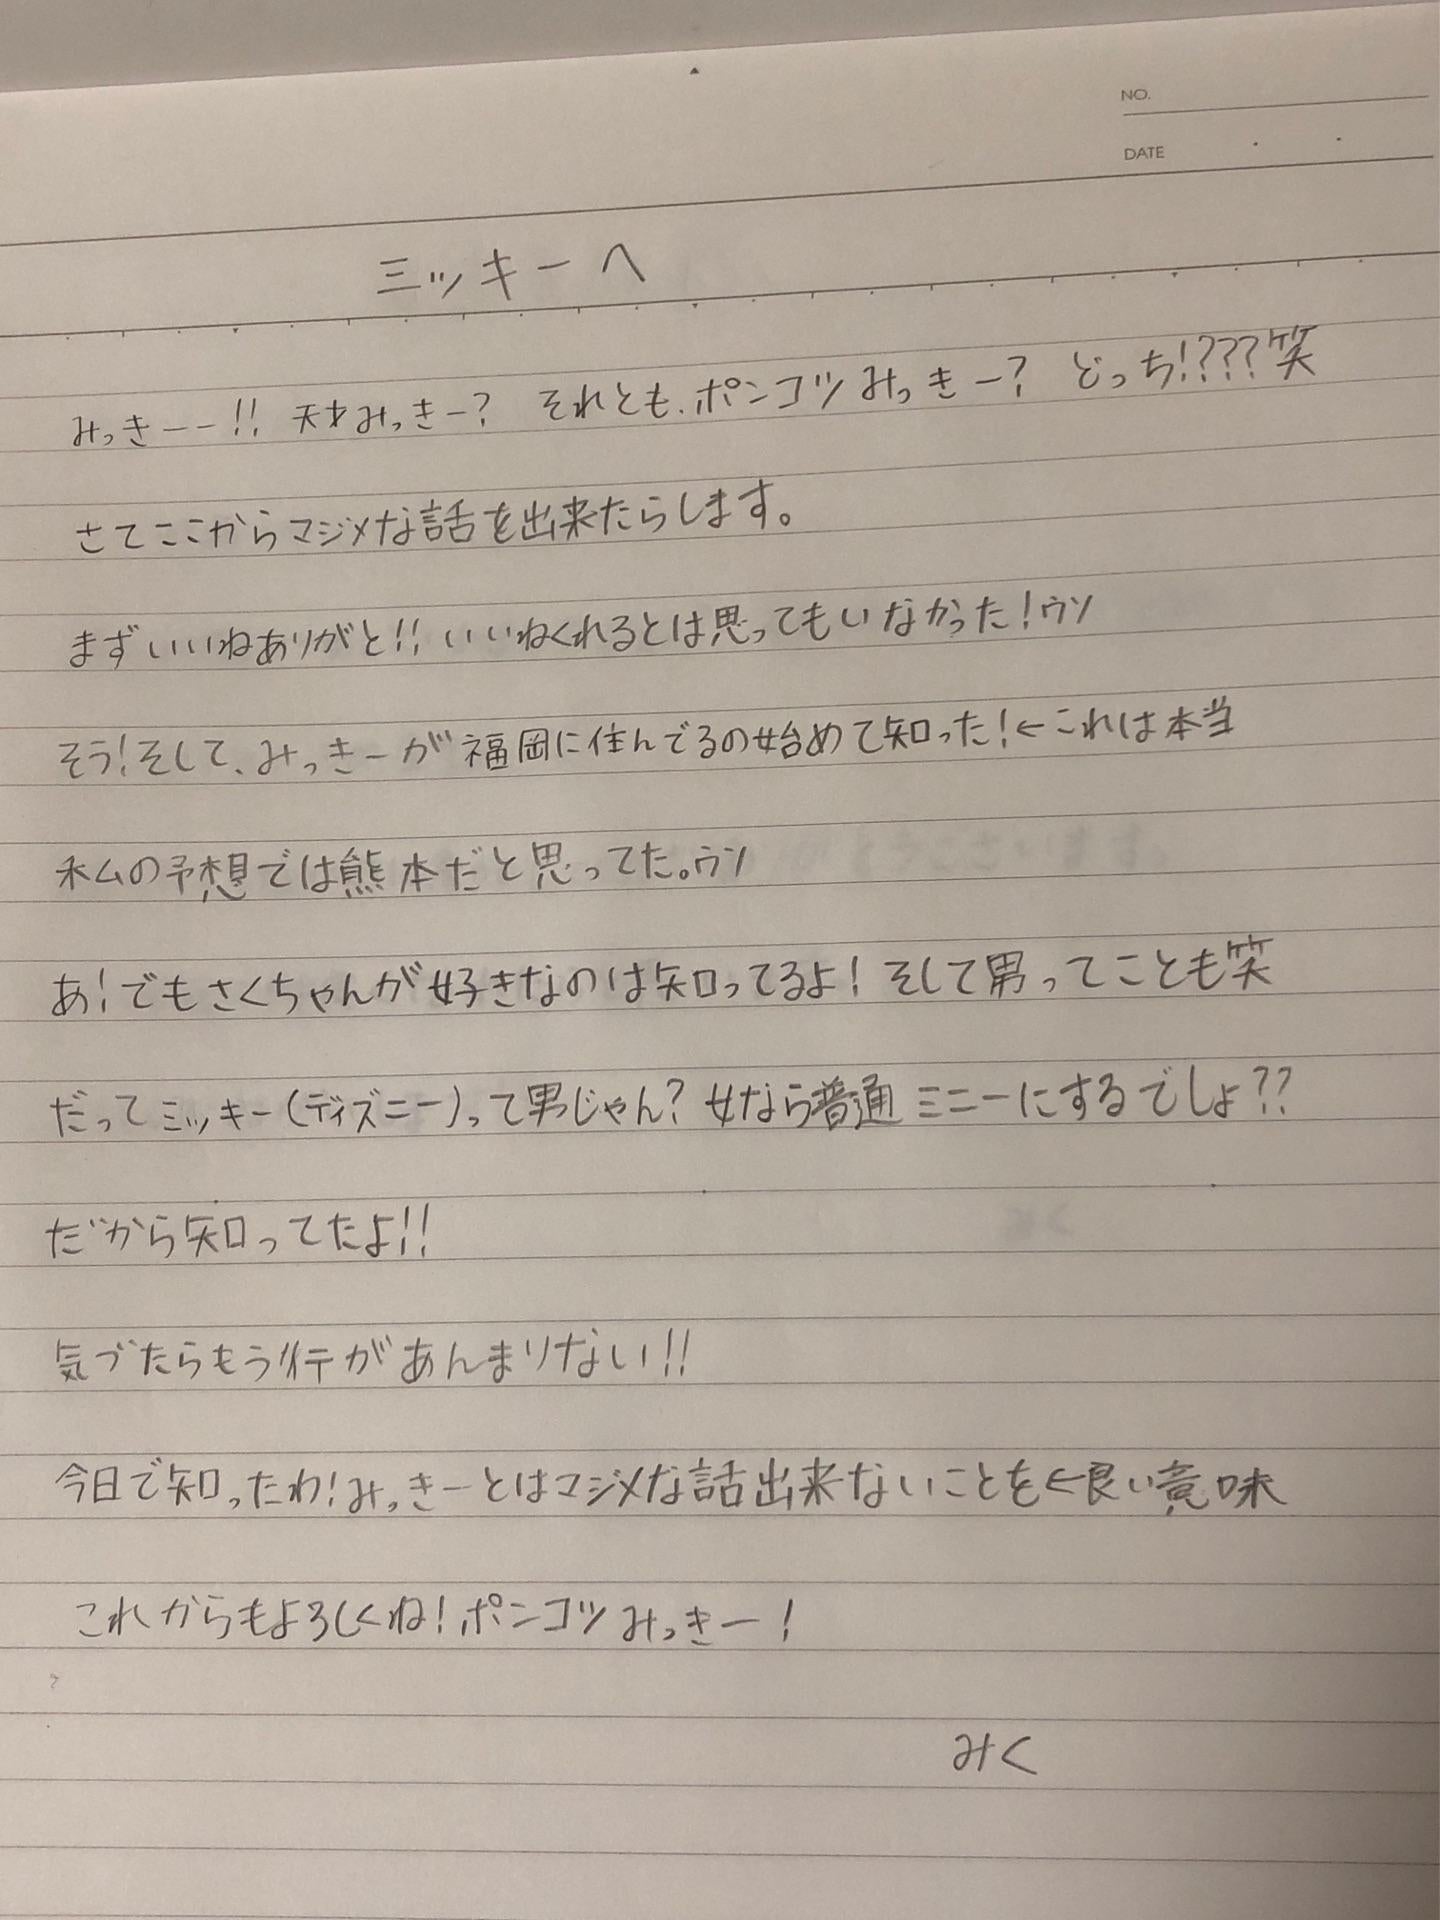 NO.
DATE
ミッキーへ
みっきーー!! 天才みっきー? それとも、ポンコツみっきー? どっち!???笑
さてここからマジメな話を出来たらします。
まずいいねありがと!! いいねくれるとは思ってもいなかった!ウソ
そう!そして、みっきーが福岡に住んでるの始めて知った!←これは本当
私の予想では熊本だと思ってた。ウソ
あ!でもさくちゃんが好きなのは知ってるよ! そして男ってことも笑
だってミッキー(ディズニー)って男じゃん? 女なら普通ミニーにするでしょ??
だから知ってたよ!!
気づたらもう行があんまりない!!
今日で知ったわ!みっきーとはマジメな話出来ないことを←良い意味
これからもよろしくね!ポンコツみっきー!
みく